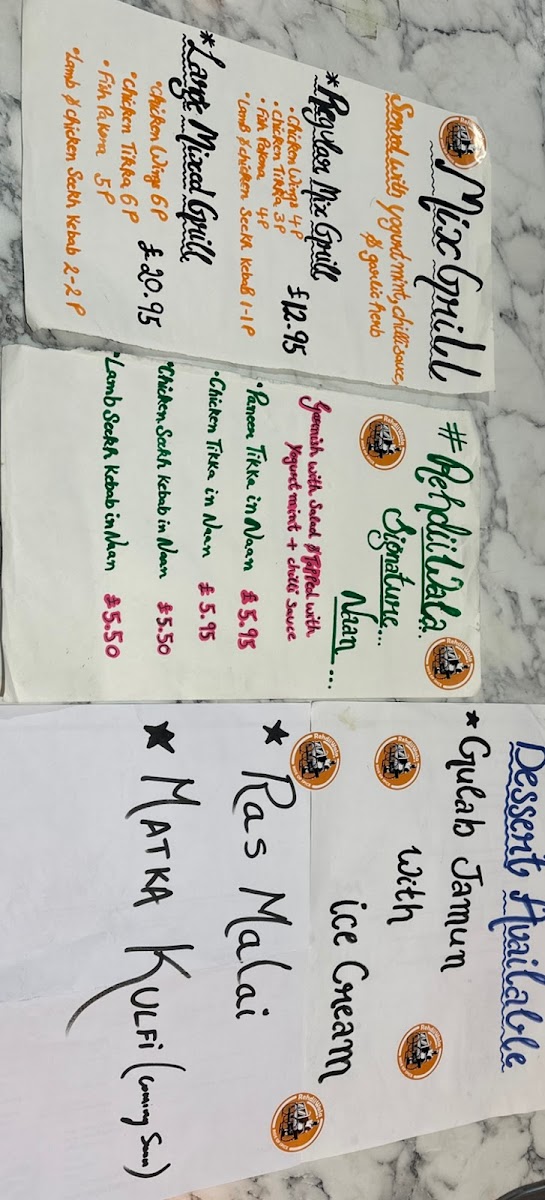 Mix Grill
Served with yogurt mint, chilli sauce,
& garlic herb
* Regular Mix Grill
£12.95
• Chicken Wings 4P
• Chicken Tikka 3P
• Fish Pakora 4P
• Lamb & Chicken Seekh Kebab 1-1P
* Large Mixed Grill
£20.95
• Chicken Wings 6P
• Chicken Tikka 6P
• Fish Pakora 5P
• Lamb & Chicken Seekh Kebab 2-2P
# Rehdii Wala..
Signature...
Naan...
Garnish with Salad & Topped with
Yogurt mint + chilli Sauce
• Paneer Tikka in Naan £5.95
• Chicken Tikka in Naan £5.95
• Chicken Seekh Kebab in Naan £5.50
• Lamb Seekh Kebab in Naan £5.50
Dessert Available
* Gulab Jamun
With
ice Cream
★ Ras Malai
★ MATKA KULFI (Coming Soon)